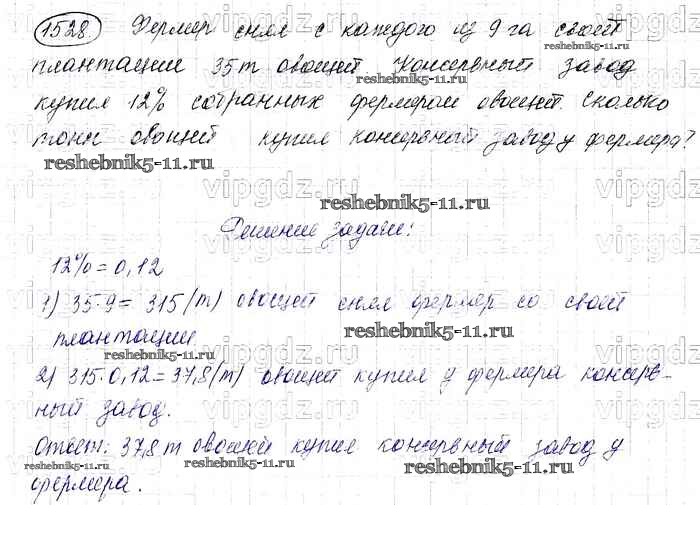 1528. Фермер снял с каждого из 9 га своей
плантации 35 т овощей. Консервный завод
купил 12% собранных фермером овощей. Сколько
тонн овощей купил консервный завод у фермера?
reshebnik5-11.ru
Решение задачи:
12% = 0,12
1) 35·9 = 315 (т) овощей снял фермер со своей
плантации
2) 315·0,12 = 37,8 (т) овощей купил у фермера консерв-
ный завод.
Ответ: 37,8 т овощей купил консервный завод у
фермера.
vipgdz.ru